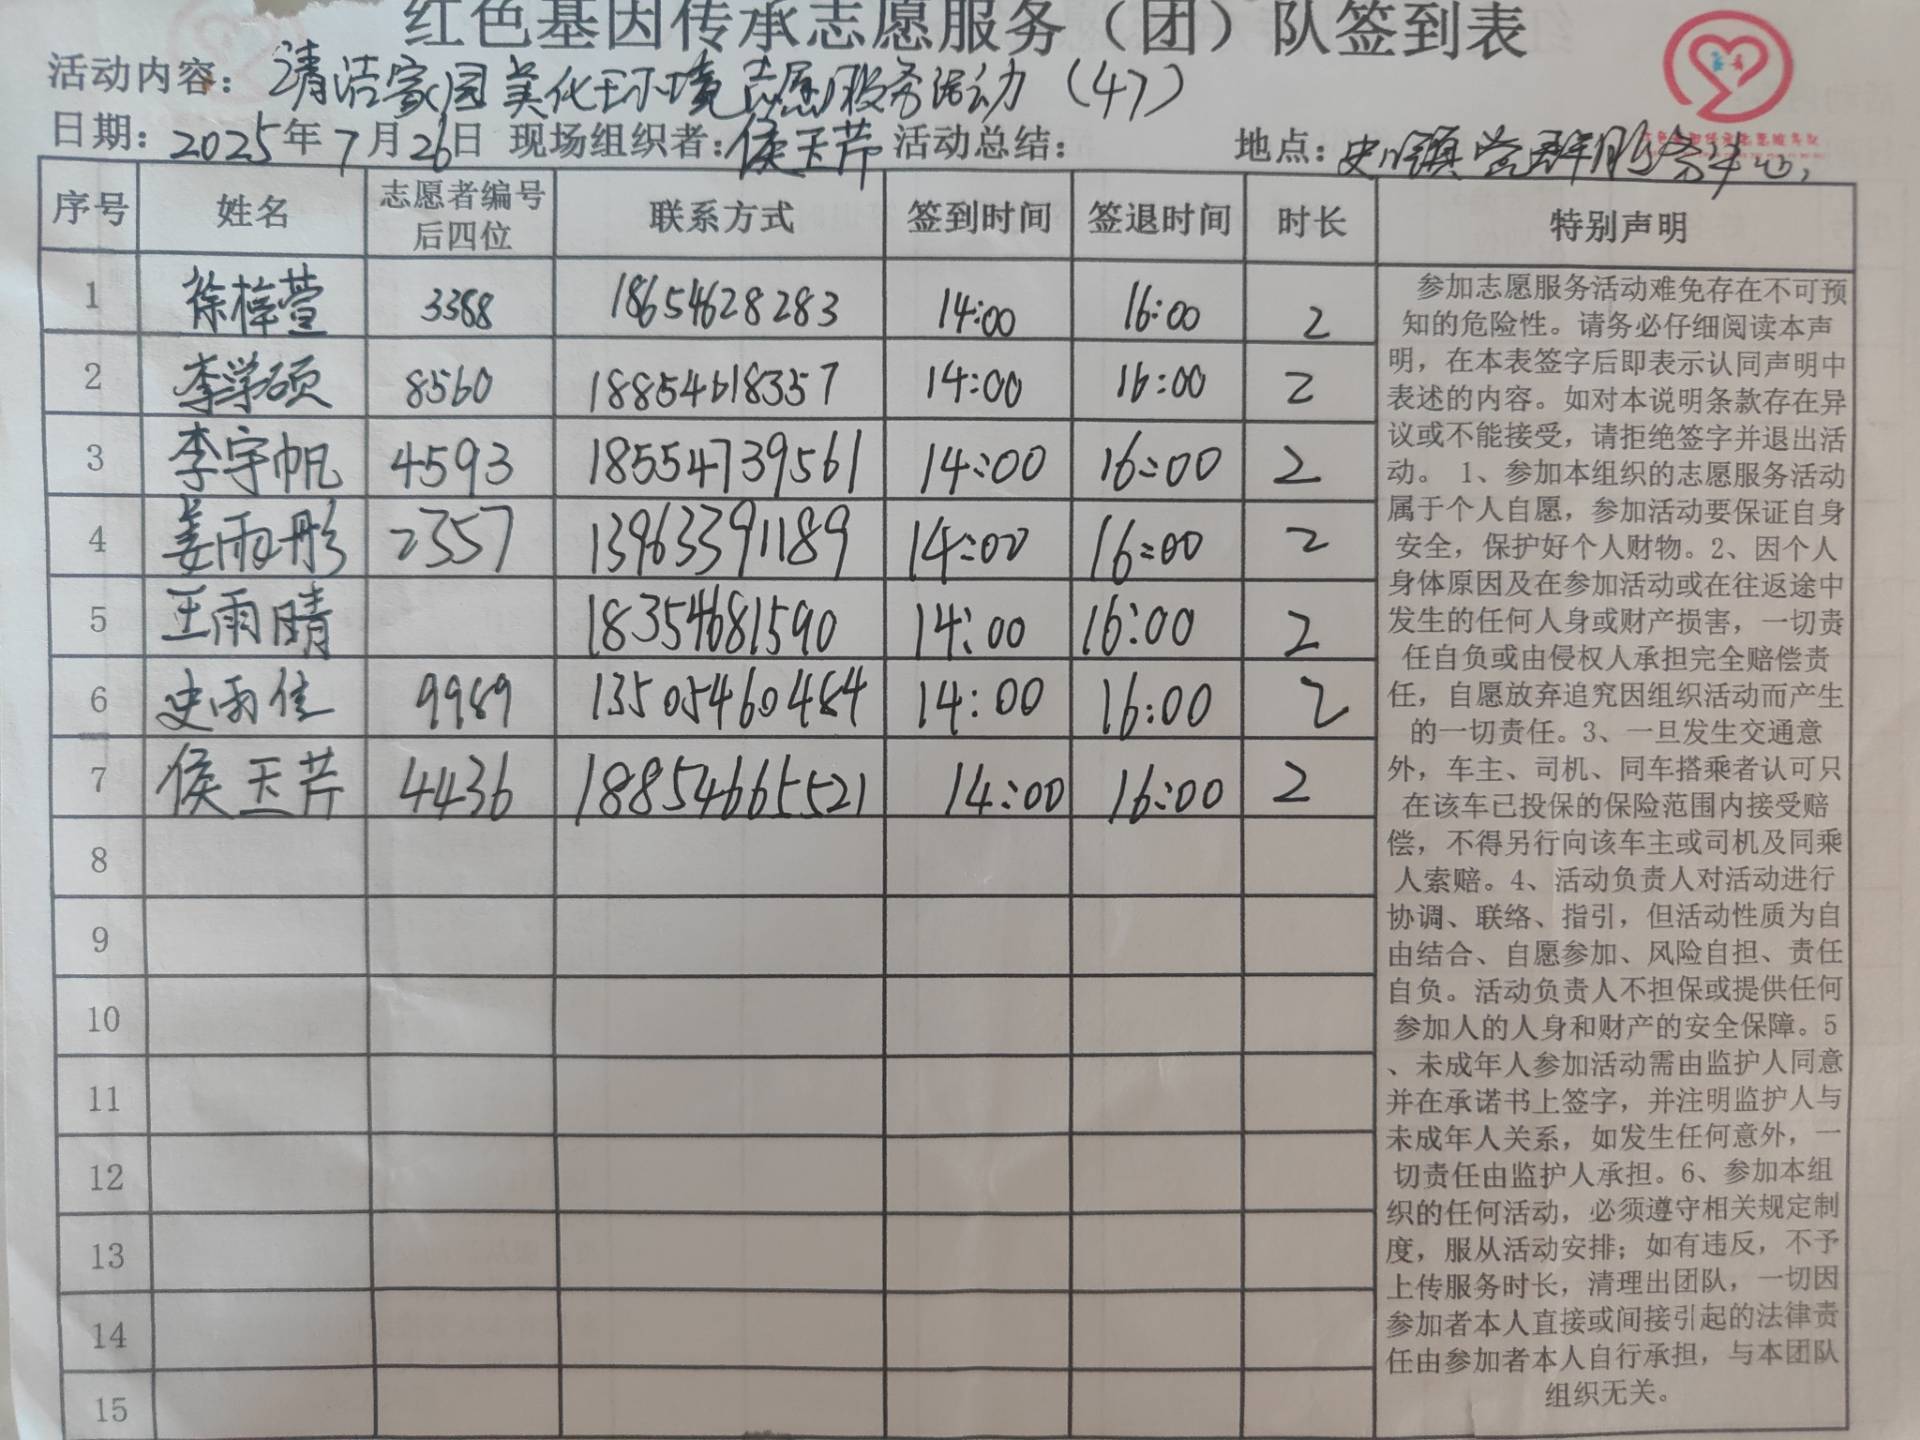 红色基因传承志愿服务（团）队签到表
活动内容：清洁家园美化环境志愿服务活动（47）
日期：2025年7月26日 现场组织者：侯玉芹 活动总结： 地点：史口镇党群服务中心
序号 姓名 志愿者编号后四位 联系方式 签到时间 签退时间 时长 特别声明
1 徐梓萱 3388 18654628283 14:00 16:00 2
2 李学硕 8560 18854618357 14:00 16:00 2
3 李宇帆 4593 18554739561 14:00 16:00 2
4 姜雨彤 2357 13963391189 14:00 16:00 2
5 王雨晴 18354681590 14:00 16:00 2
6 史雨佳 9989 13505460484 14:00 16:00 2
7 侯玉芹 4436 18854665521 14:00 16:00 2
8
9
10
11
12
13
14
15
参加志愿服务活动难免存在不可预
知的危险性。请务必仔细阅读本声
明，在本表签字后即表示认同声明中
表述的内容。如对本说明条款存在异
议或不能接受，请拒绝签字并退出活
动。 1、参加本组织的志愿服务活动
属于个人自愿，参加活动要保证自身
安全，保护好个人财物。2、因个人
身体原因及在参加活动或在往返途中
发生的任何人身或财产损害，一切责
任自负或由侵权人承担完全赔偿责
任，自愿放弃追究因组织活动而产生
的一切责任。3、一旦发生交通意
外，车主、司机、同车搭乘者认可只
在该车已投保的保险范围内接受赔
偿，不得另行向该车主或司机及同乘
人索赔。4、活动负责人对活动进行
协调、联络、指引，但活动性质为自
由结合、自愿参加、风险自担、责任
自负。活动负责人不担保或提供任何
参加人的人身和财产的安全保障。5
、未成年人参加活动需由监护人同意
并在承诺书上签字，并注明监护人与
未成年人关系，如发生任何意外，一
切责任由监护人承担。6、参加本组
织的任何活动，必须遵守相关规定制
度，服从活动安排；如有违反，不予
上传服务时长，清理出团队，一切因
参加者本人直接或间接引起的法律责
任由参加者本人自行承担，与本团队
组织无关。